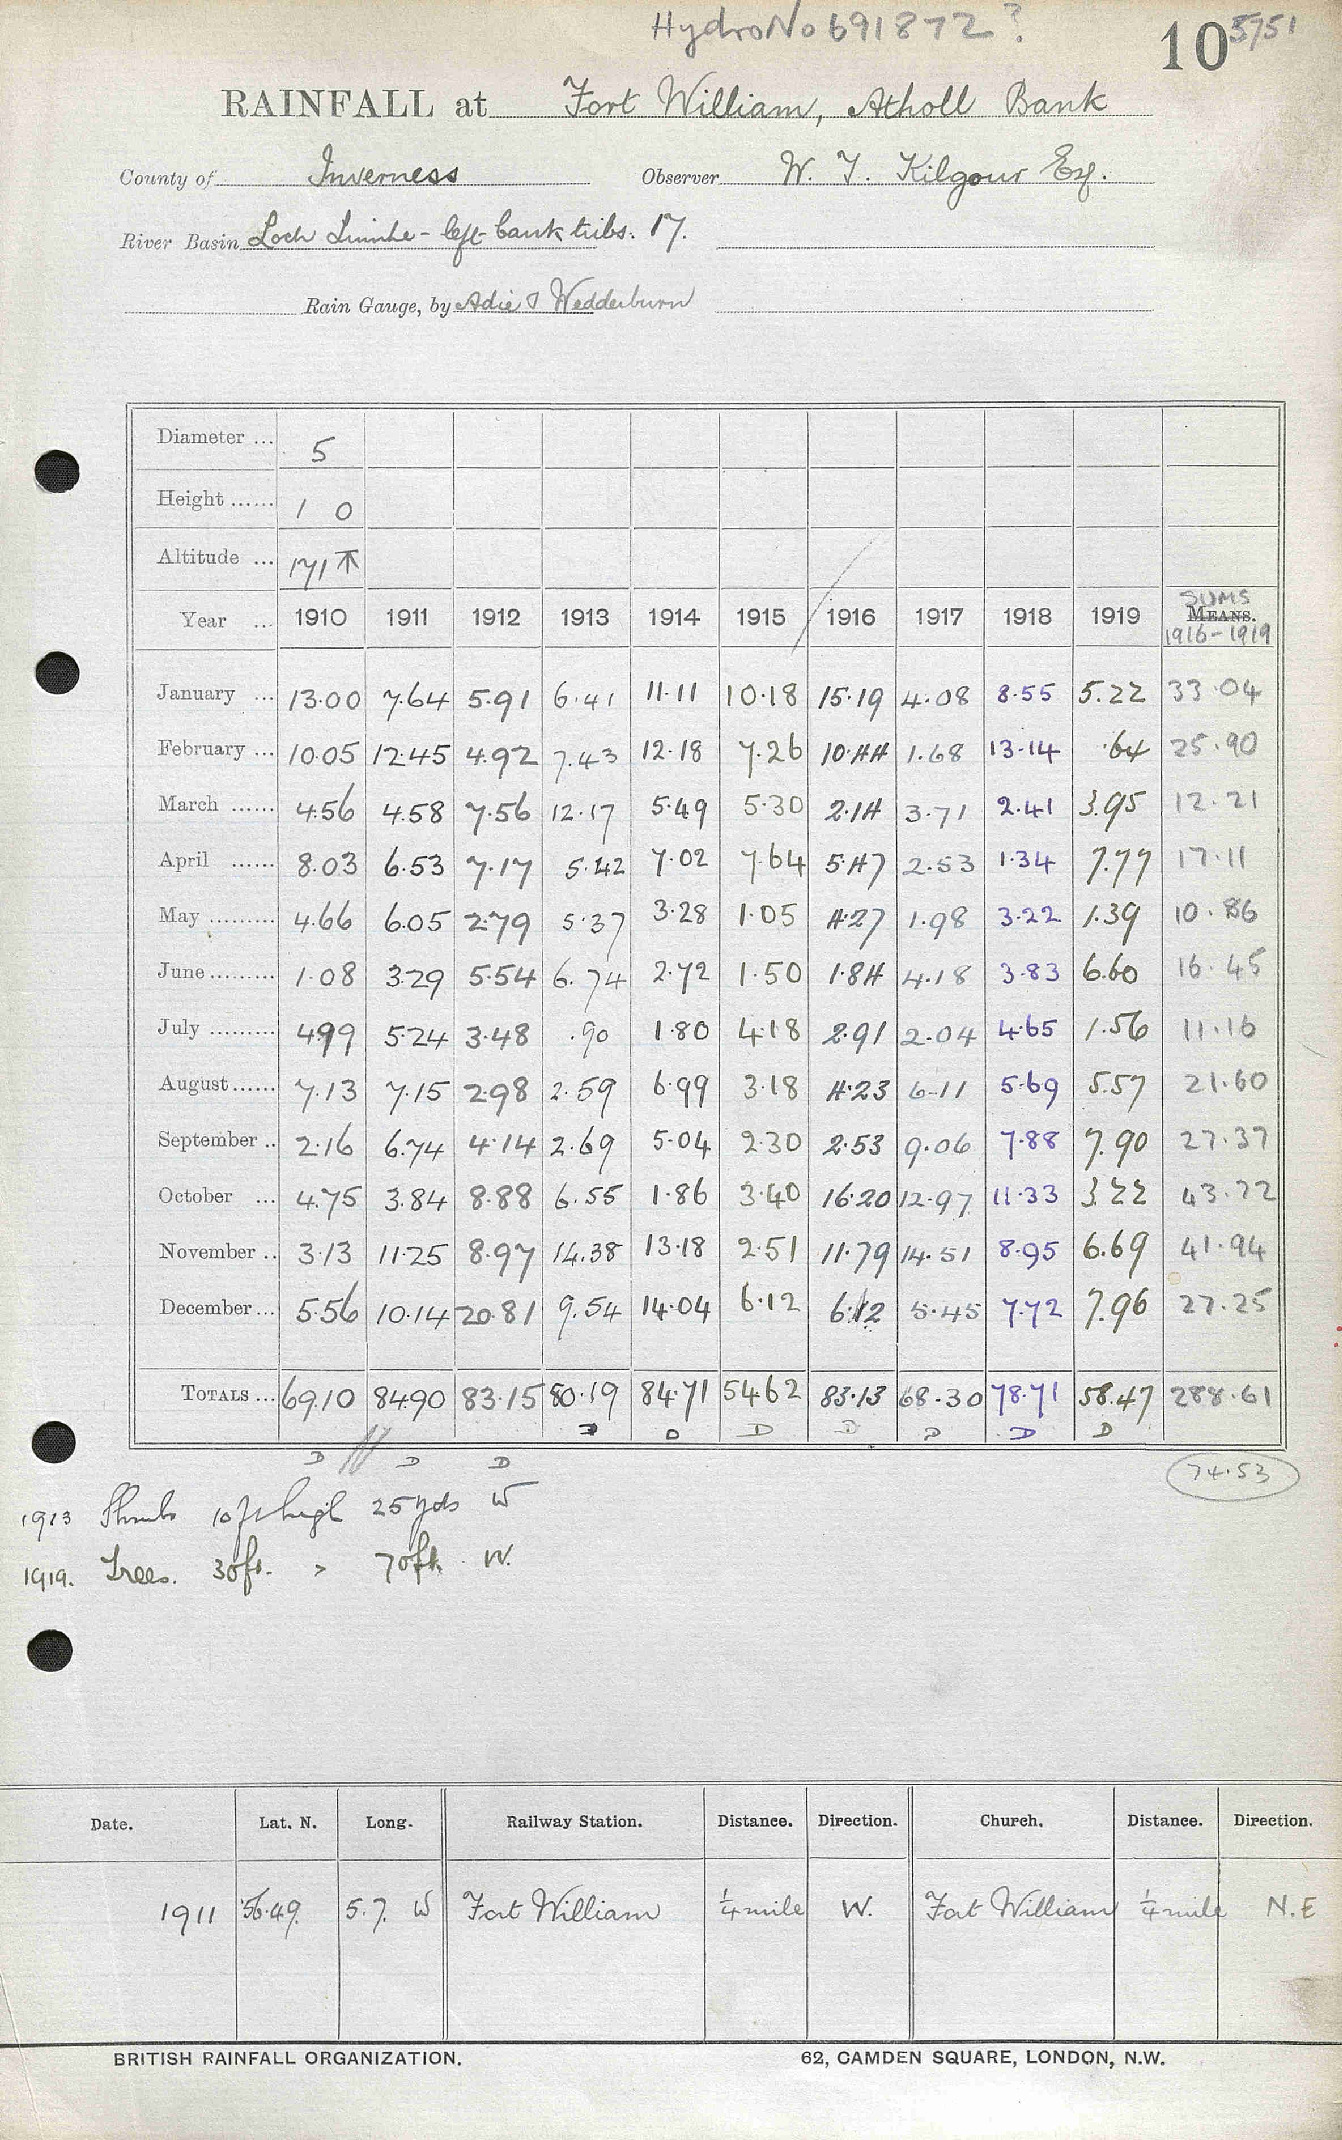 HydroNo 691872?
10 5751
RAINFALL at Fort William, Atholl Bank
County of Inverness Observer W. T. Kilgour Esq.
River Basin Loch Linnhe - left bank tribs. 17.
Rain Gauge, by Adie & Wedderburn
Diameter ... 5
Height ...... 1 0
Altitude ... 171
SUMS
Year ... 1910 1911 1912 1913 1914 1915 1916 1917 1918 1919 MEANS.
1916-1919
January ... 13.00 7.64 5.91 6.41 11.11 10.18 15.19 4.08 8.55 5.22 33.04
February ... 10.05 12.45 4.92 7.43 12.18 7.26 10.44 1.68 13.14 .64 25.90
March ...... 4.56 4.58 7.56 12.17 5.49 5.30 2.14 3.71 2.41 3.95 12.21
April ...... 8.03 6.53 7.17 5.42 7.02 7.64 5.47 2.53 1.34 7.77 17.11
May ......... 4.66 6.05 2.79 5.37 3.28 1.05 4.27 1.98 3.22 1.39 10.86
June ......... 1.08 3.29 5.54 6.74 2.72 1.50 1.84 4.18 3.83 6.60 16.45
July ......... 4.99 5.24 3.48 .90 1.80 4.18 2.91 2.04 4.65 1.56 11.16
August ...... 7.13 7.15 2.98 2.59 6.99 3.18 4.23 6.11 5.69 5.57 21.60
September .. 2.16 6.74 4.14 2.69 5.04 2.30 2.53 9.06 7.88 7.90 27.37
October ... 4.75 3.84 8.88 6.55 1.86 3.40 16.20 12.97 11.33 3.22 43.72
November .. 3.13 11.25 8.97 14.38 13.18 2.51 11.79 14.51 8.95 6.69 41.94
December ... 5.56 10.14 20.81 9.54 14.04 6.12 6.12 5.45 7.72 7.96 27.25
TOTALS ... 69.10 84.90 83.15 80.19 84.71 54.62 83.13 68.30 78.71 58.47 288.61
D D D D D D D
D D D
74.53
1913 Shrubs 10ft high 25 yds W
1919. Trees. 30ft. > 70ft. W.
Date. Lat. N. Long. Railway Station. Distance. Direction. Church. Distance. Direction.
1911 56.49. 5.7. W Fort William ¼ mile W. Fort William ¼ mile N.E
BRITISH RAINFALL ORGANIZATION. 62, CAMDEN SQUARE, LONDON, N.W.